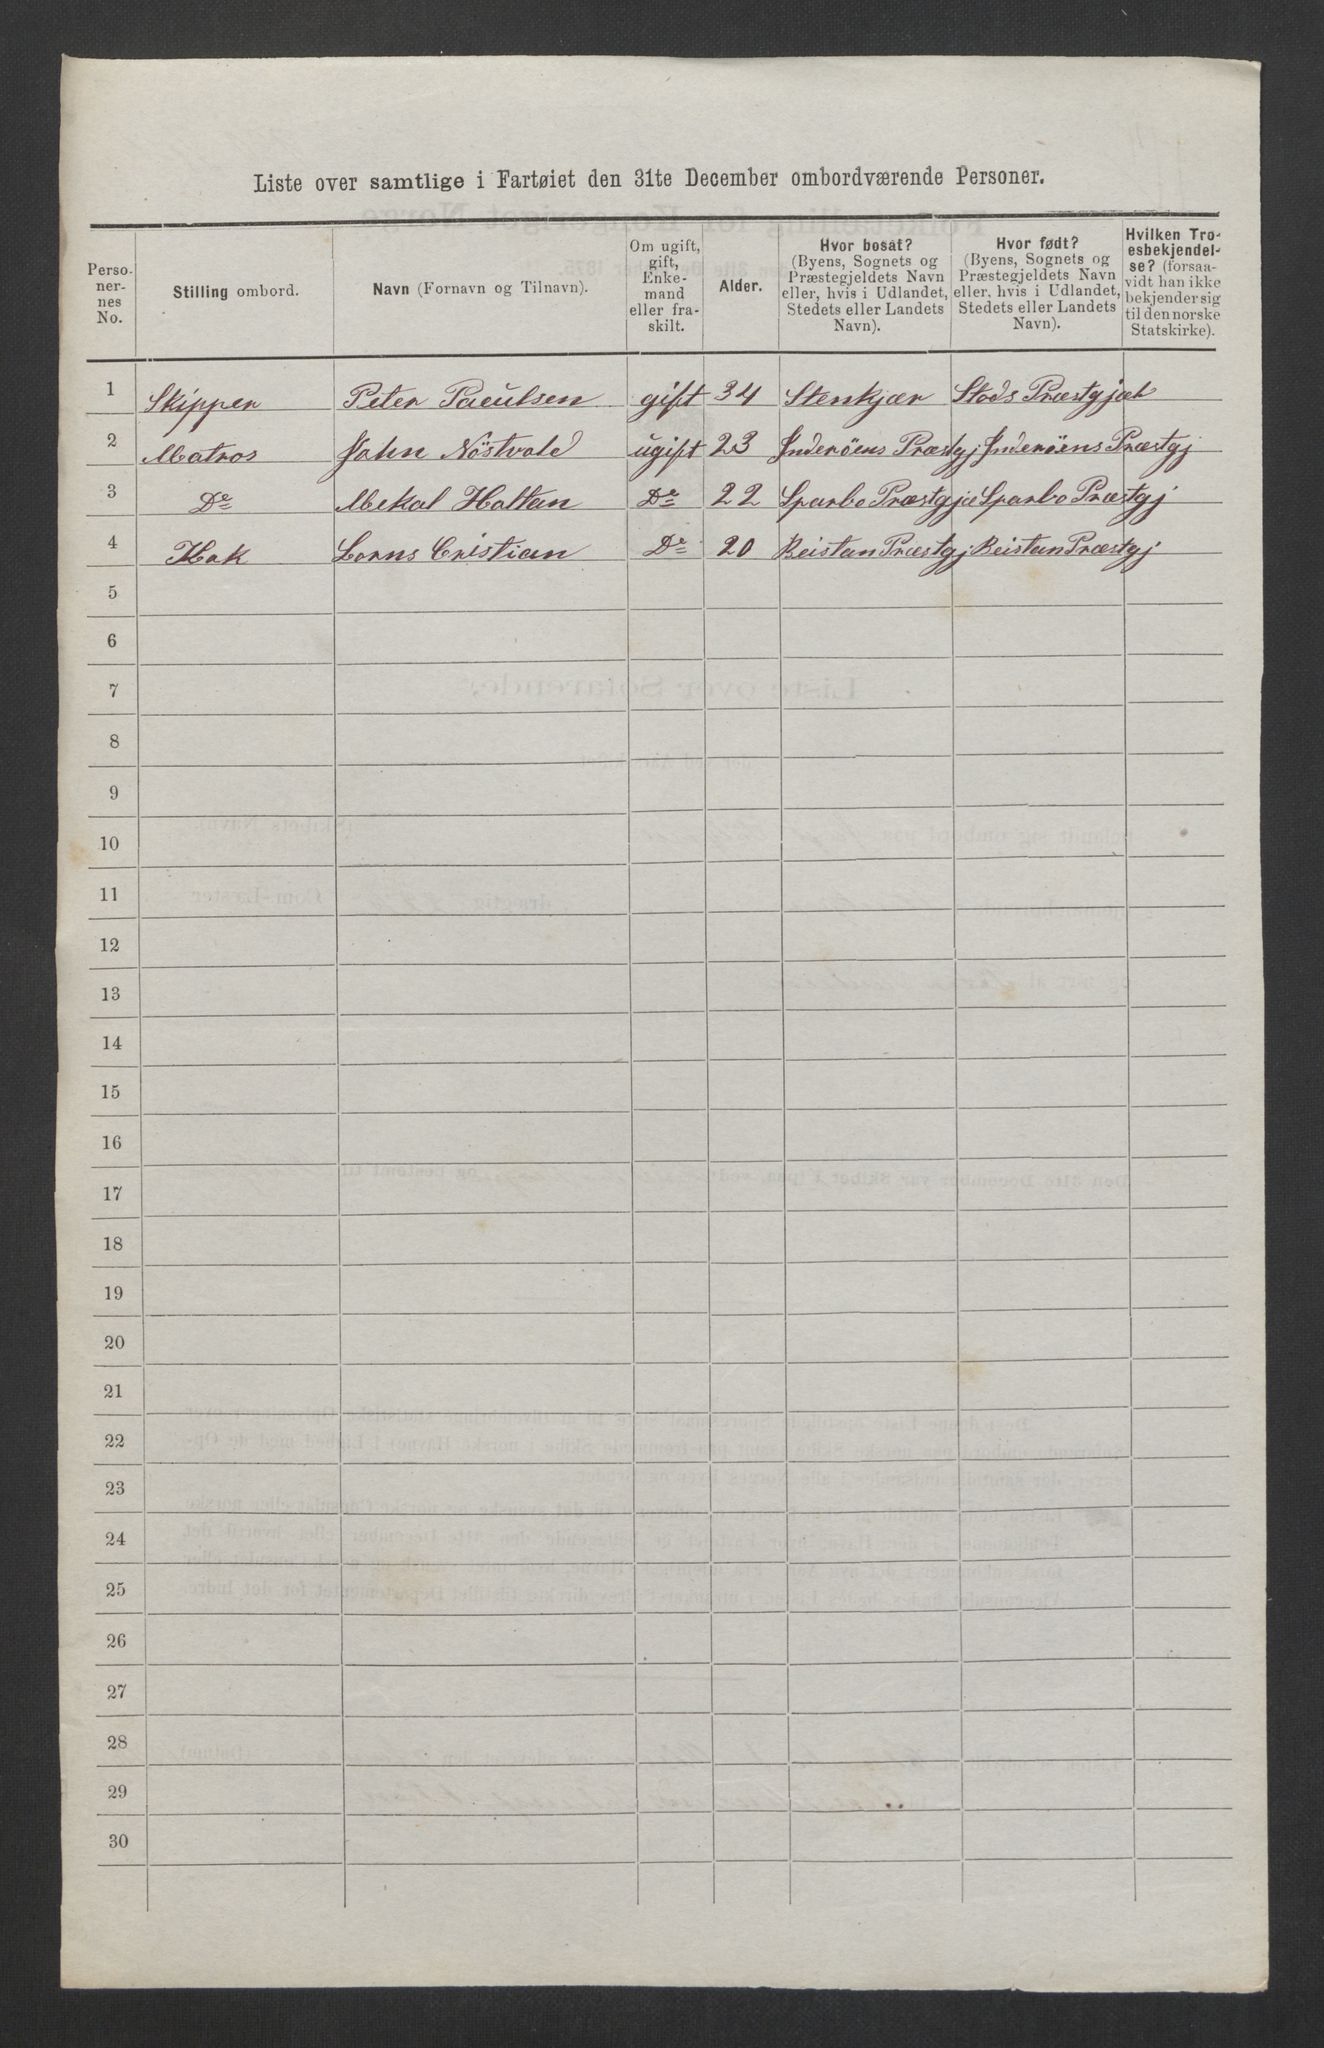 Liste over samtlige i Fartøiet den 31te December ombordværende Personer.
Perso-
ner-
nes
No.
Stilling ombord.
Navn (Fornavn og Tilnavn).
Om ugift,
gift,
Enke-
mand
eller fra-
skilt.
Alder.
Hvor bosat?
(Byens, Sognets og
Præstegjeldets Navn
eller, hvis i Udlandet,
Stedets eller Landets
Navn).
Hvor født?
(Byens, Sognets og
Præstegjeldets Navn
eller, hvis i Udlandet,
Stedets eller Landets
Navn).
Hvilken Tro-
esbekjendel-
se? (forsaa-
vidt han ikke
bekjender sig
til den norske
Statskirke).
1 Skipper Peter Paeulsen gift 34 Stenkjær Stods Præstgjæl
2 Matros John Nöstvold ugift 23 Inderöens Præstgj Inderöens Præstgj
3 De Mekal Haltan De 22 Sparbo Præstgjæ Sparbo Præstgj
4 Kok Lorns Cristian De 20 Beistan Præstgj Beistan Præstgj
5
6
7
8
9
10
11
12
13
14
15
16
17
18
19
20
21
22
23
24
25
26
27
28
29
30